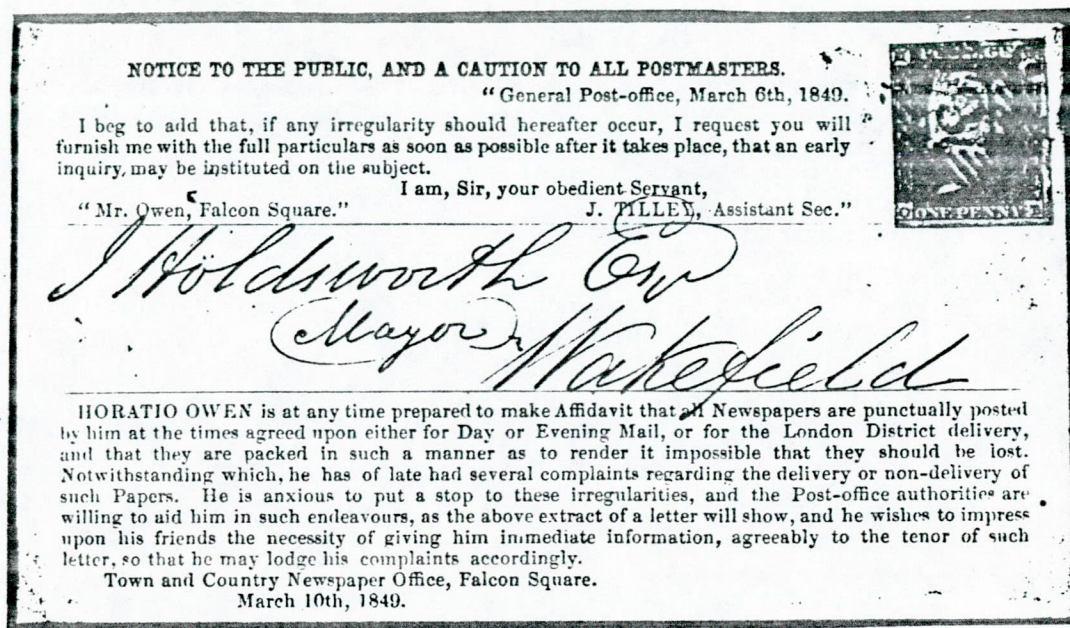 NOTICE TO THE PUBLIC, AND A CAUTION TO ALL POSTMASTERS.
"General Post-office, March 6th, 1849.
I beg to add that, if any irregularity should hereafter occur, I request you will
furnish me with the full particulars as soon as possible after it takes place, that an early
inquiry, may be instituted on the subject.
I am, Sir, your obedient Servant,
"Mr. Owen, Falcon Square." J. TILLEY, Assistant Sec."
ONE PENNY
J Holdsworth Esqr
Mayor
Wakefield
HORATIO OWEN is at any time prepared to make Affidavit that all Newspapers are punctually posted
by him at the times agreed upon either for Day or Evening Mail, or for the London District delivery,
and that they are packed in such a manner as to render it impossible that they should be lost.
Notwithstanding which, he has of late had several complaints regarding the delivery or non-delivery of
such Papers. He is anxious to put a stop to these irregularities, and the Post-office authorities are
willing to aid him in such endeavours, as the above extract of a letter will show, and he wishes to impress
upon his friends the necessity of giving him immediate information, agreeably to the tenor of such
letter, so that he may lodge his complaints accordingly.
Town and Country Newspaper Office, Falcon Square.
March 10th, 1849.